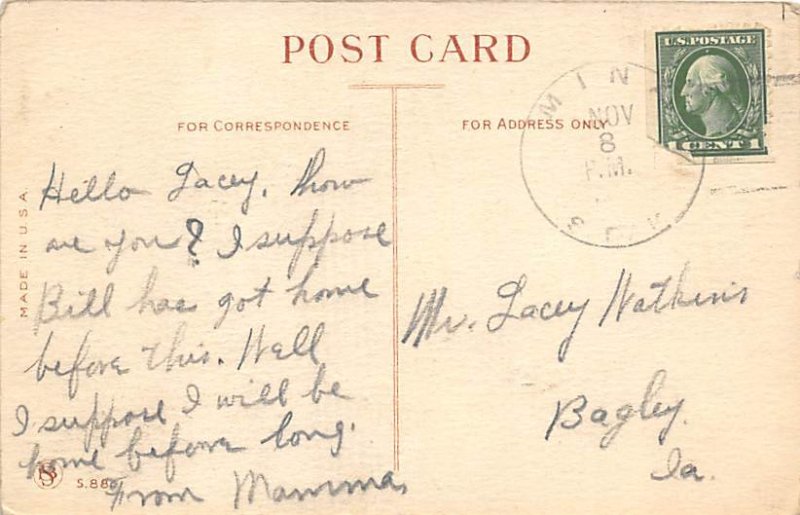 POST CARD
FOR CORRESPONDENCE
FOR ADDRESS ONLY
U.S. POSTAGE
1 CENT 1
MIN
NOV
8
P.M.
MADE IN U.S.A.
Hello Lacey, how
are you? I suppose
Bill has got home
before this. Well
I suppose I will be
home before long.
From Mamma
Mr. Lacey Watkins
Bagley,
Ia.
S.88